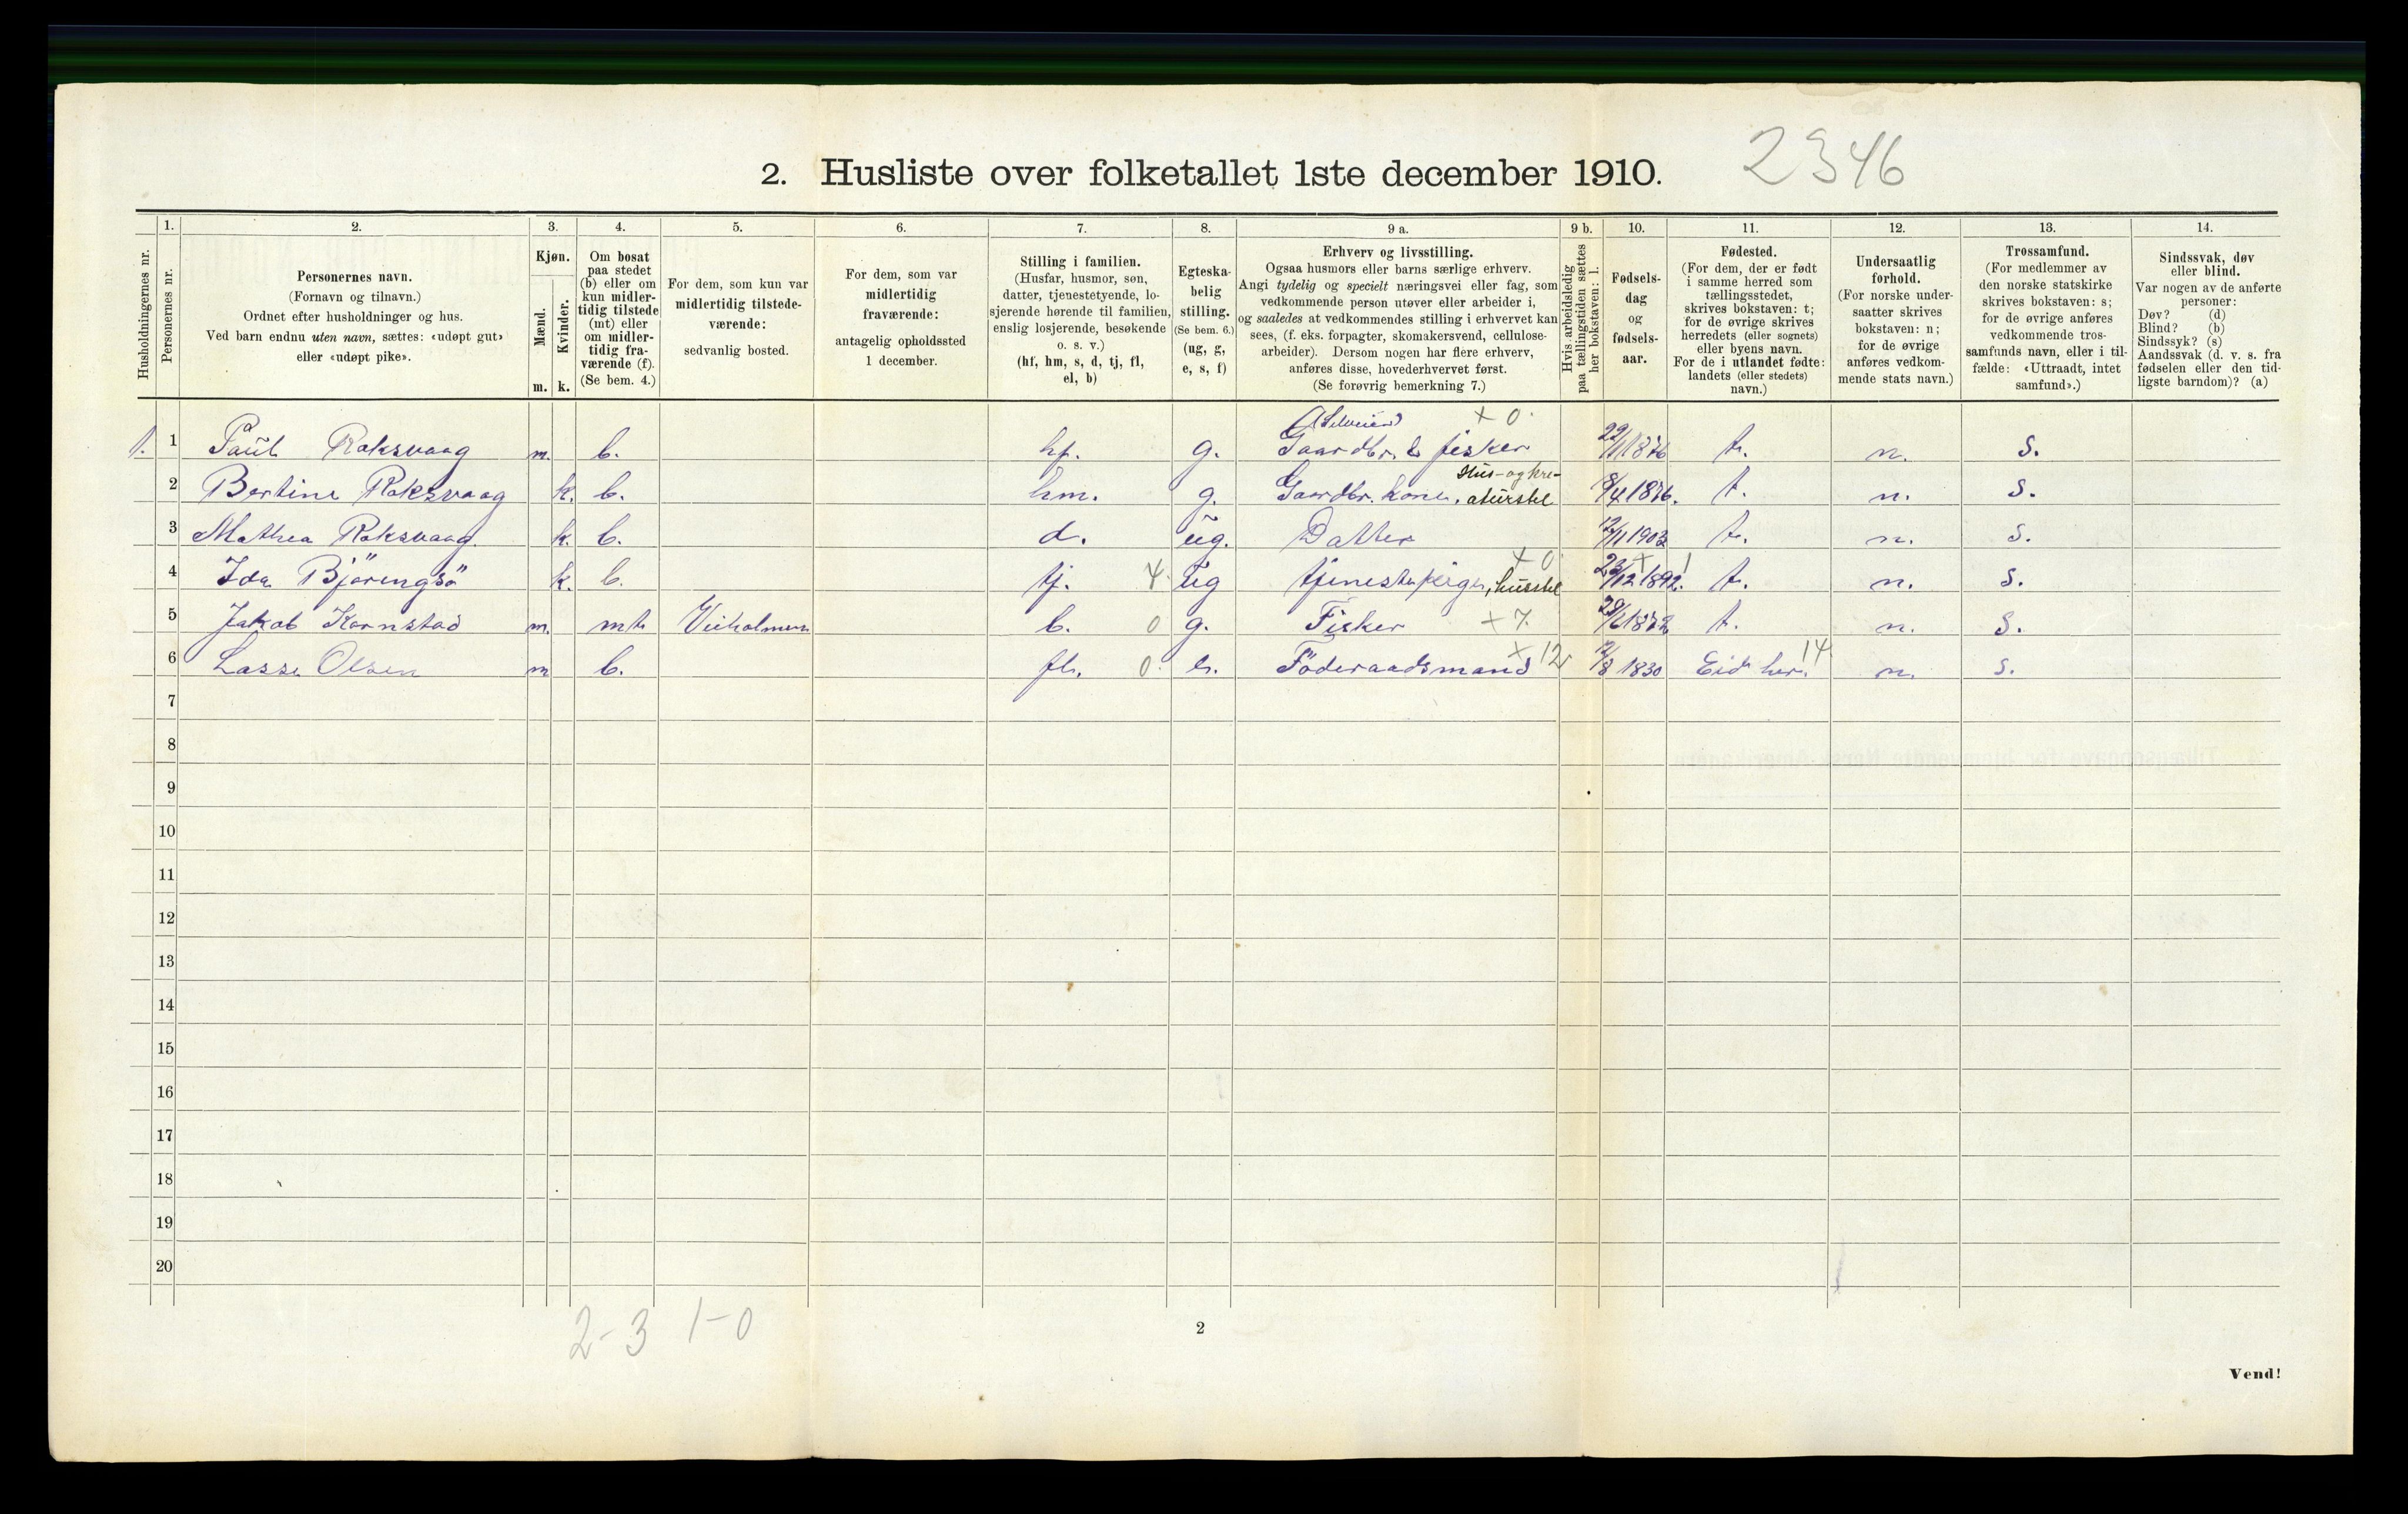 2346
2. Husliste over folketallet 1ste december 1910.
Husholdningernes nr.
1.
Personernes nr.
2.
Personernes navn.
(Fornavn og tilnavn.)
Ordnet efter husholdninger og hus.
Ved barn endnu uten navn, sættes: «udøpt gut»
eller «udøpt pike».
3.
Kjøn.
Mænd.
Kvinder.
m. k.
4.
Om bosat
paa stedet
(b) eller om
kun midler-
tidig tilstede
(mt) eller
om midler-
tidig fra-
værende (f).
(Se bem. 4.)
5.
For dem, som kun var
midlertidig tilstede-
værende:
sedvanlig bosted.
6.
For dem, som var
midlertidig
fraværende:
antagelig opholdssted
1 december.
7.
Stilling i familien.
(Husfar, husmor, søn,
datter, tjenestetyende, lo-
sjerende hørende til familien,
enslig losjerende, besøkende
o. s. v.)
(hf, hm, s, d, tj, fl,
el, b)
8.
Egteska-
belig
stilling.
(Se bem. 6.)
(ug, g,
e, s, f)
9 a.
Erhverv og livsstilling.
Ogsaa husmors eller barns særlige erhverv.
Angi tydelig og specielt næringsvei eller fag, som
vedkommende person utøver eller arbeider i,
og saaledes at vedkommendes stilling i erhvervet kan
sees, (f. eks. forpagter, skomakersvend, cellulose-
arbeider). Dersom nogen har flere erhverv,
anføres disse, hovederhvervet først.
(Se forøvrig bemerkning 7.)
9 b.
Hvis arbeidsledig
paa tællingstiden sættes
her bokstaven: l.
10.
Fødsels-
dag
og
fødsels-
aar.
11.
Fødested.
(For dem, der er født
i samme herred som
tællingsstedet,
skrives bokstaven: t;
for de øvrige skrives
herredets (eller sognets)
eller byens navn.
For de i utlandet fødte:
landets (eller stedets)
navn.)
12.
Undersaatlig
forhold.
(For norske under-
saatter skrives
bokstaven: n;
for de øvrige
anføres vedkom-
mende stats navn.)
13.
Trossamfund.
(For medlemmer av
den norske statskirke
skrives bokstaven: s;
for de øvrige anføres
vedkommende tros-
samfunds navn, eller i til-
fælde: «Uttraadt, intet
samfund».)
14.
Sindssvak, døv
eller blind.
Var nogen av de anførte
personer:
Døv? (d)
Blind? (b)
Sindssyk? (s)
Aandssvak (d. v. s. fra
fødselen eller den tid-
ligste barndom)? (a)
(Selveier) × 0
1. 1 Paul Roksvaag m. b. hf. g. Gaardbr. & fisker 22/11 1876 t. n. s.
Hus- og kre-
2 Bertine Roksvaag k. b. hm. g. Gaardbr. kone, aturstel 8/4 1876. t. n. s.
3 Mathea Roksvaag k. b. d. ug. Datter 12/11 1903 t. n. s.
× 0 × 1
4 Ida Björingsö k. b. tj. 4 ug tjenestepige, husstel 23/12 1892. t. n. s.
5 Jakob Kornstad m. mt. Veiholmen b. 0 g. Fisker × 7. 29/6 1872 t. n. s.
6 Lasse Olsen m b. fl. 0. e. Föderaadsmand × 12 12/8 1830 Eid her. 14 n. s.
7
8
9
10
11
12
13
14
15
16
17
18
19
20
2-3 1-0
2
Vend!